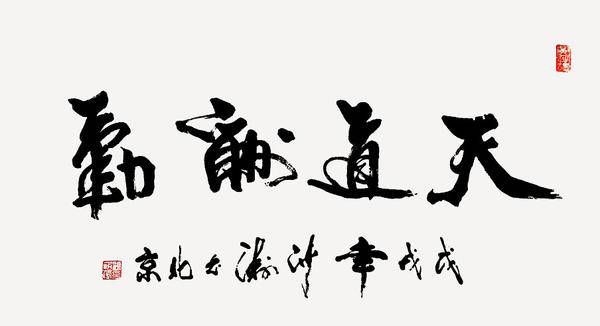 天道酬勤
戊戌年沙北京